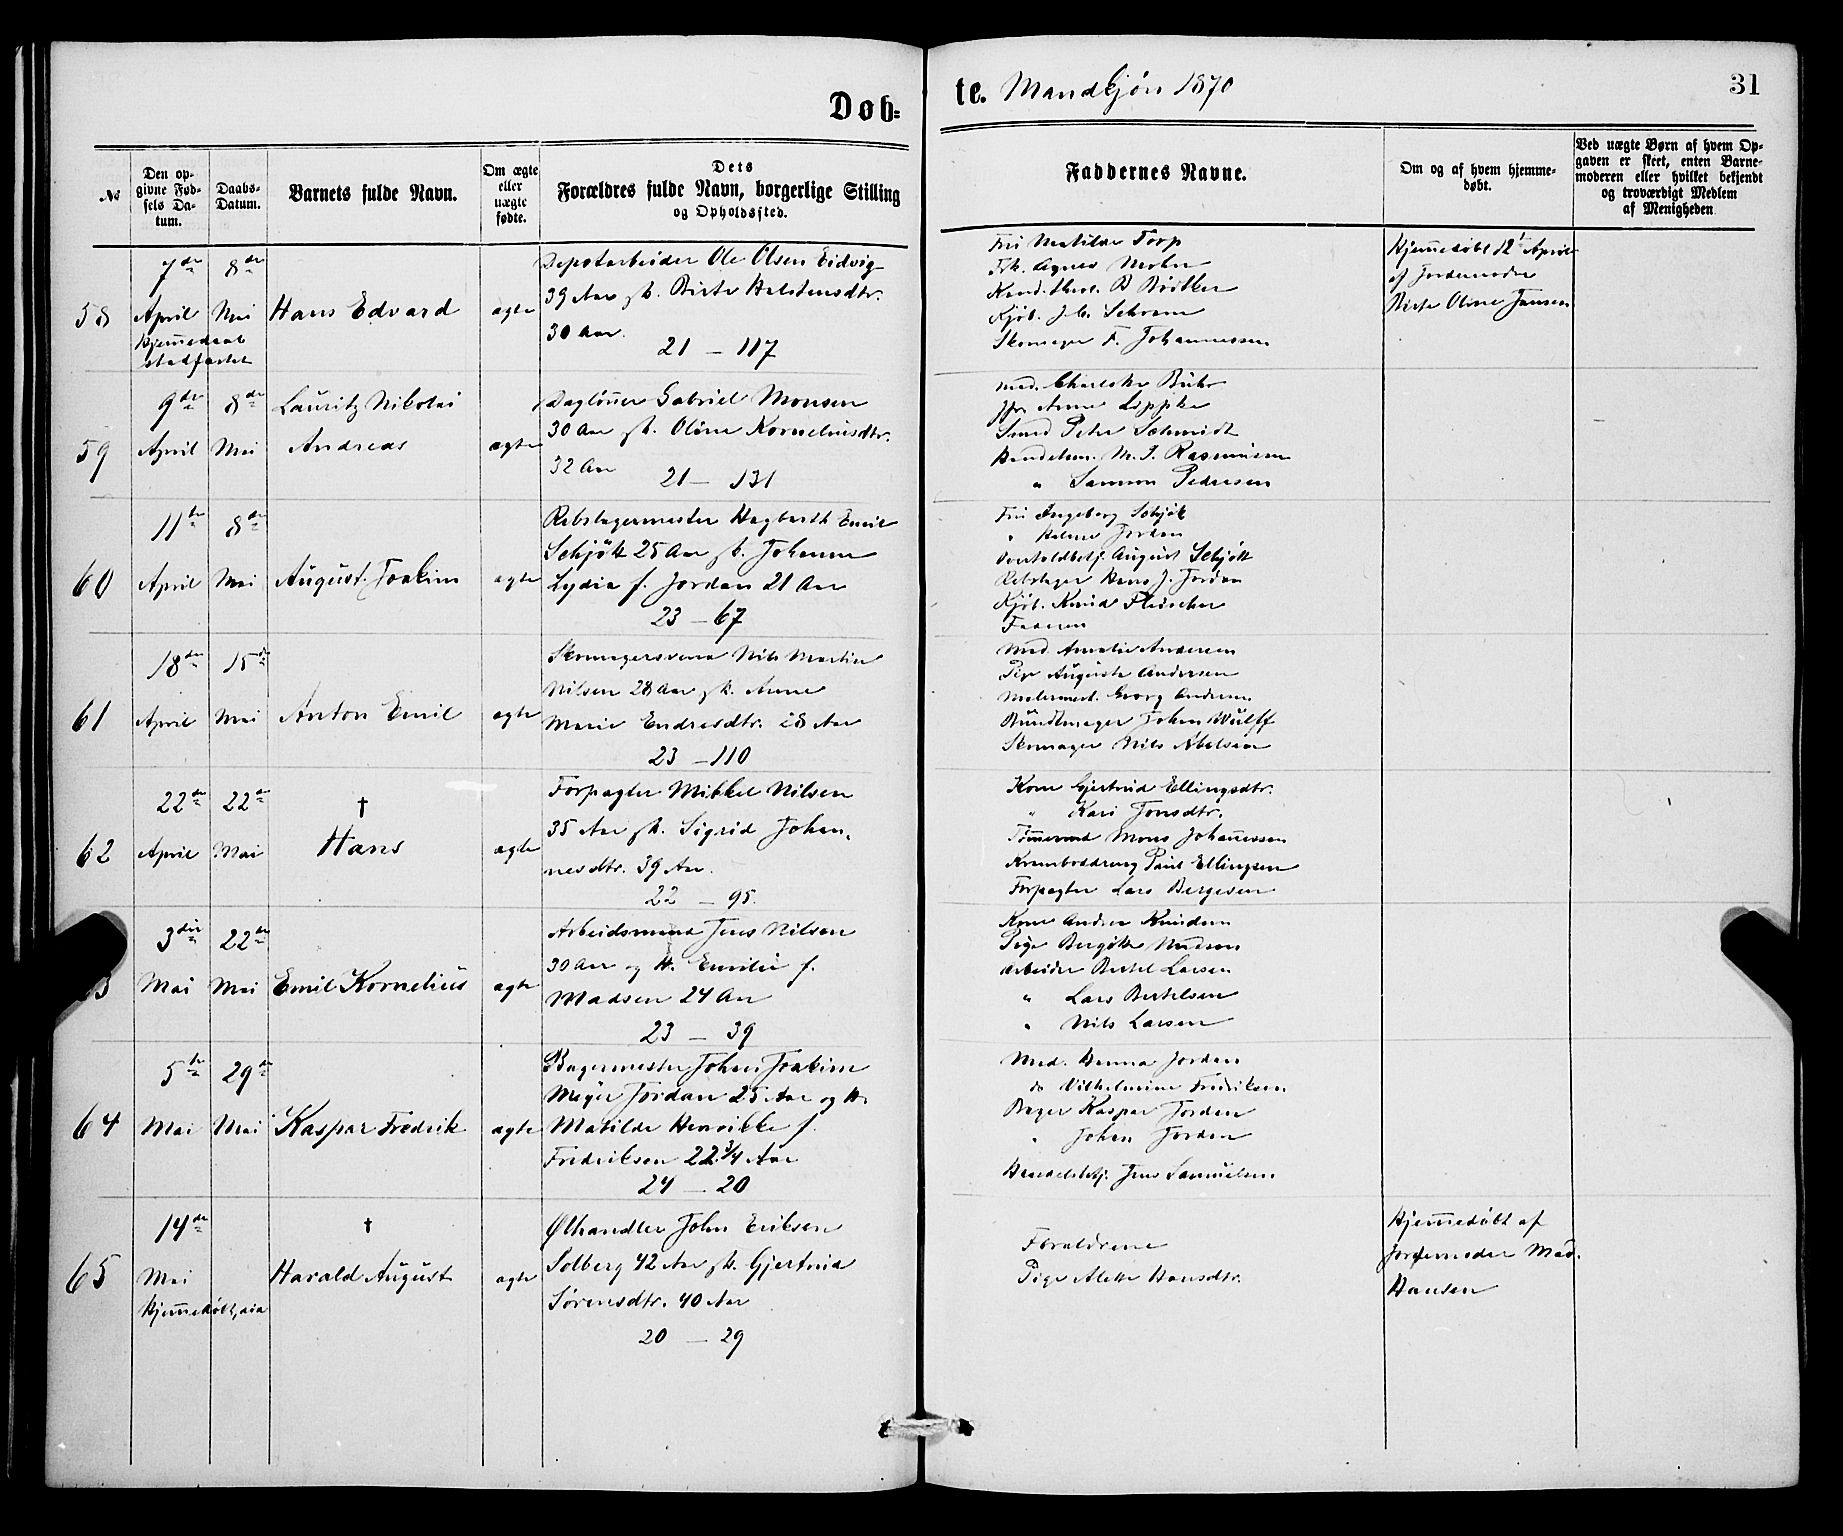 Døb=
te. Mandkjøn 1870
31
No
Den op-
givne Fød-
sels Da-
tum.
Daabs-
Datum.
Barnets fulde Navn.
Om ægte
eller
uægte
fødte.
Dets
Forældres fulde Navn, borgerlige Stilling
og Opholdssted.
Faddernes Navne.
Om og af hvem hjemme-
døbt.
Ved uægte Børn af hvem Op-
gaven er skeet, enten Barne-
moderen eller hvilket bekjendt
og troværdigt Medlem
af Menigheden
58
7de
April
Hjemmedaab
stadfæstet
8de
Mai
Hans Edvard
ægte
Depotarbeider Ole Olsen Eidvig
39 Aar Birte Halstensdtr.
30 Aar.
21 - 117
Fru Matilde Torp
Frk. Agnes Mohr
Kand. theol. B Bödtker
Kjöb. J. C. Schram
Skomager F. Johannessen
Hjemmedöbt 12' April
af Jordemoder
Birte Oline Jansen
59
9de
April
8de
Mai
Lauritz Nikolai
Andreas
ægte
Daglönner Gabriel Monsen
30 Aar Oline Korneliusdtr.
32 Aar
21 - 131
Mad. Charlotte Buhr
Jfr. Anne Lippke
Smed Peter Schmidt
Handelsm. M. J. Rasmussen
" Samson Pedersen
60
11te
April
8de
Mai
August Joakim
ægte
Rebslagermester Hagbarth Emil
Schjött 25 Aar Johanne
Lydia f. Jordan 21 Aar
23 - 67
Fru Ingeborg Schjött
" Jordan
August Schjött
Rebslager Hans J. Jordan
Kjöb. Knud Fleischer
Faderen
61
18de
April
15de
Mai
Anton Emil
ægte
Skomagersvend Nils Martin
Nilsen 28 Aar Anne
Marie Endresdtr. 28 Aar
23 - 110
Mad. Amalie Andersen
Pige Augusta Andersen
Malermest. Georg Andersen
Bundtmager Johan Wulff
Skomager Nils Abelsen
62
22de
April
22de
Mai
†
Hans
ægte
Forpagter Mikkel Nilsen
35 Aar Sigrid Johan-
nesdtr. 39 Aar.
22 - 95.
Kone Gjertrud Ellingsdtr.
" Kari Jonsdtr.
Tömmermd Mons Johannessen
Kramboddreng Paul Ellingsen
Forpagter Lars Bergesen
3
3die
Mai
22de
Mai
Emil Kornelius
ægte
Arbeidsmand Jens Nilsen
30 Aar og H. Emilie f.
Madsen 24 Aar
23 - 39
Kone Andrea Knudsen
Pige Bergitte Madsen
Arbeider Bertel Larsen
" Lars Bertelsen
" Nils Larsen
64
5te
Mai
29de
Mai
Kaspar Fredrik
ægte
Bagermester Johan Joakim
Meyer Jordan 25 Aar og H.
Matilde Henrikke f.
Fredriksen 22 3/4 Aar
24 - 20
Mad. Hanna Jordan
do Vilhelmine Fredriksen
Bager Kaspar Jordan
" Johan Jordan
Handelsbtj. Jens Samuelsen
65
14de
Mai
Hjemmedöbt, död
†
Harald August
ægte
Ølhandler John Eriksen
Solberg 42 Aar Gjertrud
Sörensdtr. 40 Aar
20 - 29
Forældrene
Pige Alette Hansdtr.
Hjemmedöbt af
Jordemoder Mad.
Hansen